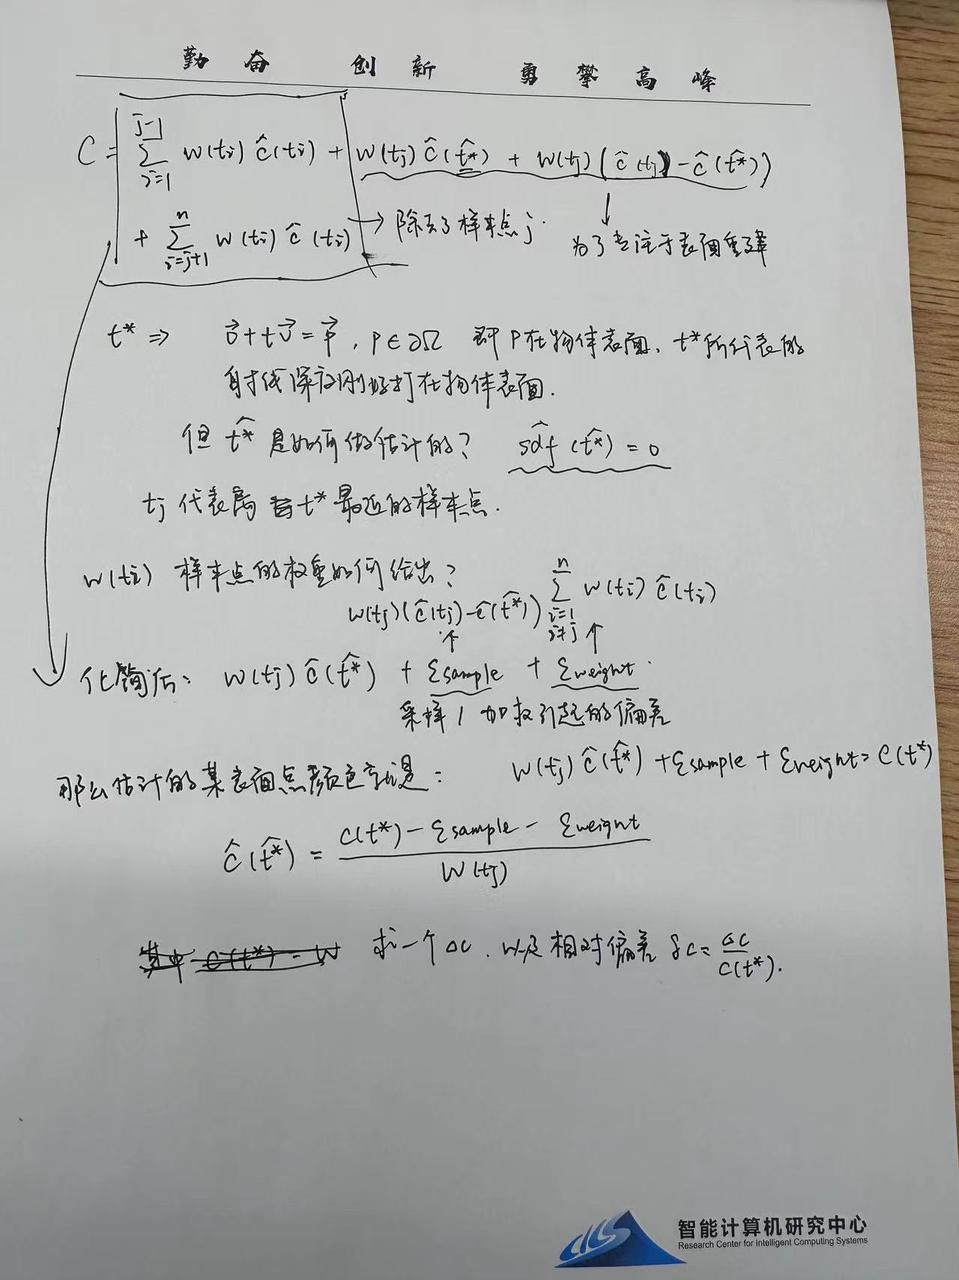 勤奋 创新 勇攀高峰
C = \sum_{i=1}^{j-1} w(ti) ĉ(ti) + w(tj) ĉ(t̂*) + w(tj) (ĉ(tj) - ĉ(t̂*))
+ \sum_{i=j+1}^{n} w(ti) ĉ(ti) → 除去了样本点j.
为了专注于表面重建
t* ⇒ o⃗+tv⃗ = p⃗, p∈∂Ω 即P在物体表面, t*所代表的
射线深度刚好打在物体表面.
但 t̂* 是如何做估计的? sdf̂(t̂*) = 0
tj 代表离 t* 最近的样本点.
w(ti) 样本点的权重如何给出?
w(tj)(ĉ(tj)-ĉ(t̂*)) \sum_{i=1, i≠j}^{n} w(ti) ĉ(ti)
化简后: w(tj) ĉ(t̂*) + εsample + εweight.
采样/加权引起的偏差
那么估计的某表面点颜色就是: w(tj) ĉ(t̂*) + εsample + εweight = C(t*)
ĉ(t̂*) = \frac{C(t*) - εsample - εweight}{W(tj)}
其中 C(t*) = W 求一个 ΔC, 以及相对偏差 δC = \frac{ΔC}{C(t*)}.
智能计算机研究中心
Research Center for Intelligent Computing Systems